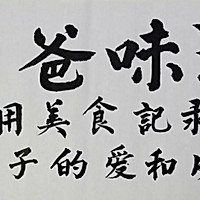 爸味
用美食記
子的愛和